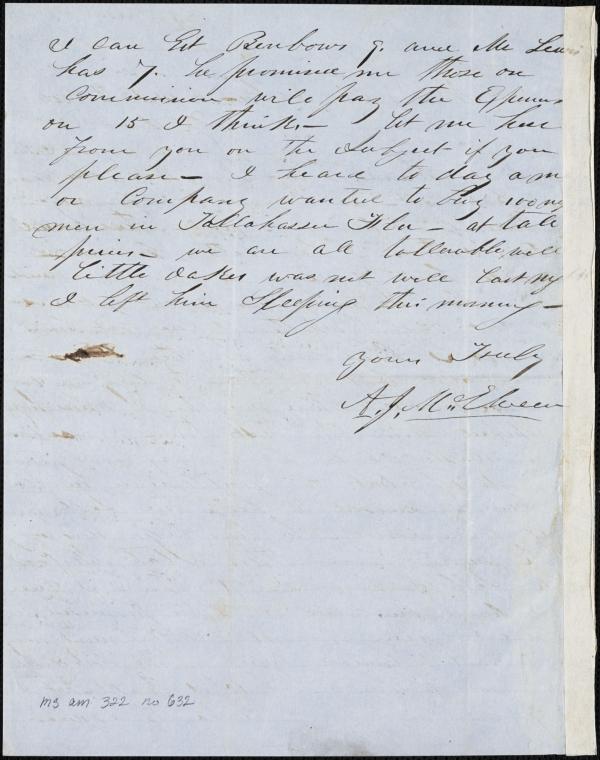 I can Get Benbows 9. and Mr Lewis
has 7. he promised me those on
Commission will pay the Expenses
on 15 I think – let me hear
from you on the Subject if you
please – I heard to day a m
or Company wanted to buy 100 n
men in Tallahassee Fla – at tall
prices – we are all tollarable well
Little Oakes was not well last ny
I left him Sleeping this morning –
yours Truly
A. J. McElveen
ms am 322 no 632